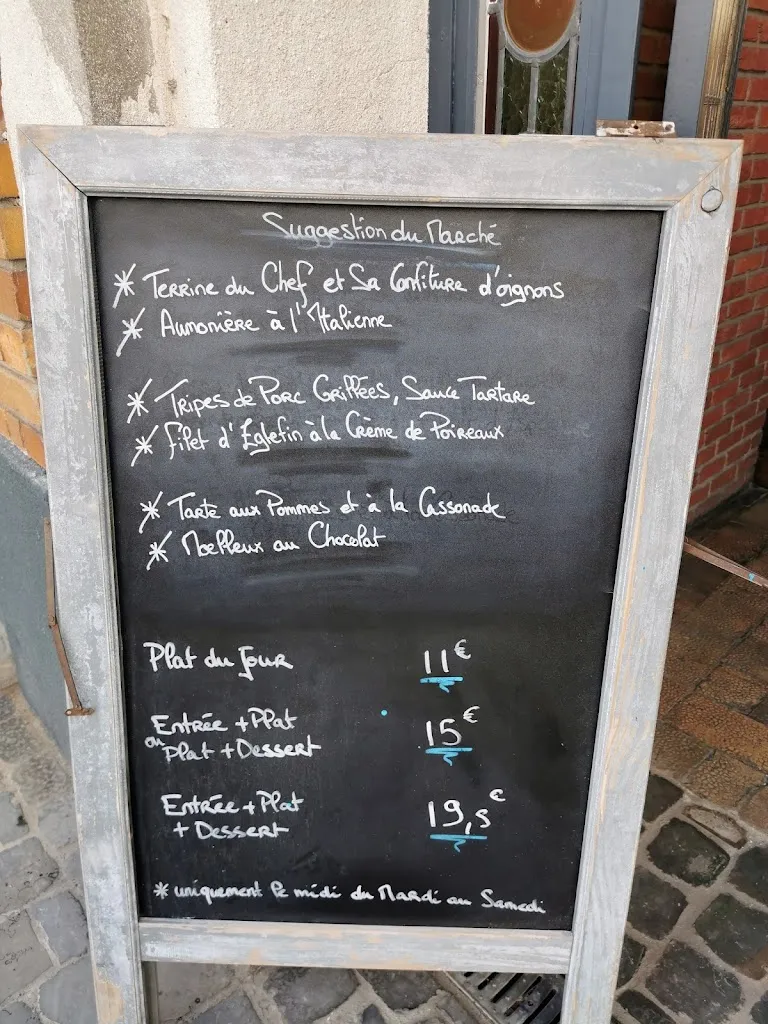 Suggestion du Marché
* Terrine du Chef et Sa Confiture d'oignons
* Aumonière à l'Italienne
* Tripes de Porc Griffées, Sauce Tartare
* Filet d'Eglefin à la Crème de Poireaux
* Tarte aux Pommes et à la Cassonade
* Moelleux au Chocolat
Plat du Jour 11€
Entrée + Plat
ou Plat + Dessert 15€
Entrée + Plat
+ Dessert 19,5€
* uniquement le midi du Mardi au Samedi